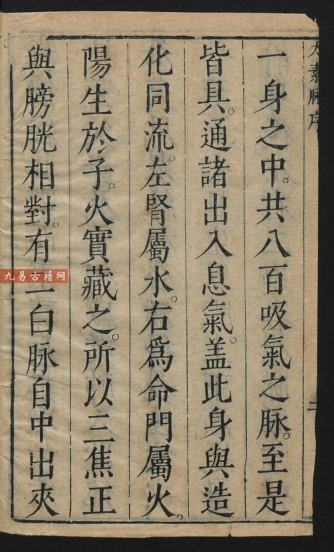 太素脉序
一身之中。共八百吸氣之脉。至是
皆具。通諸出入息氣。盖此身與造
化同流。左腎屬水。右爲命門屬火。
陽生於子。火實藏之。所以三焦正
與膀胱相對。有二白脉自中出夾
九易古籍网